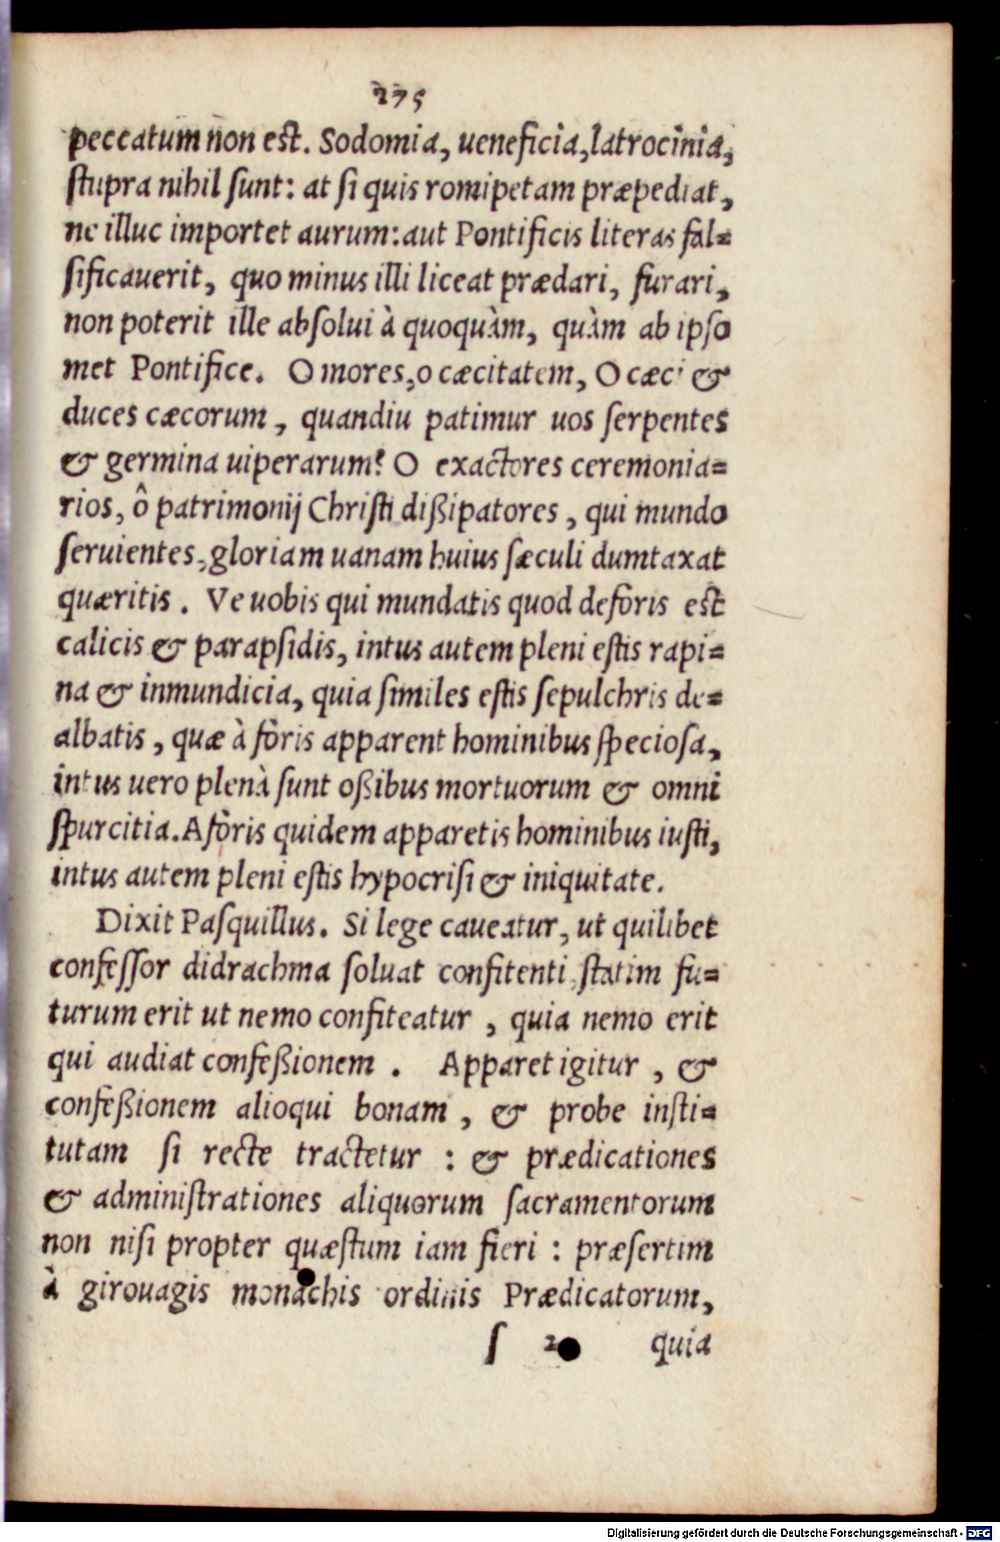 275
peccatum non est. Sodomia, ueneficia, latrocinia,
ſtupra nihil ſunt: at ſi quis romipetam præpediat,
ne illuc importet aurum: aut Pontificis literas fal=
ſificauerit, quo minus illi liceat prædari, furari,
non poterit ille abſolui à quoquàm, quàm ab ipſo
met Pontifice. O mores, o cæcitatem, O cæci &
duces cæcorum, quandiu patimur uos ſerpentes
& germina uiperarum? O exactores ceremonia=
rios, ô patrimonij Chriſti dißipatores, qui mundo
ſeruientes, gloriam uanam huius ſæculi dumtaxat
quæritis. Ve uobis qui mundatis quod deforis est
calicis & parapſidis, intus autem pleni eſtis rapi=
na & inmundicia, quia ſimiles eſtis ſepulchris de=
albatis, quæ à foris apparent hominibus ſpecioſa,
intus uero plena ſunt oßibus mortuorum & omni
ſpurcitia. A foris quidem apparetis hominibus iuſti,
intus autem pleni eſtis hypocriſi & iniquitate.
Dixit Paſquillus. Si lege caueatur, ut quilibet
confeſſor didrachma ſoluat confitenti, ſtatim fu=
turum erit ut nemo confiteatur, quia nemo erit
qui audiat confeßionem. Apparet igitur, &
confeßionem alioqui bonam, & probe inſti=
tutam ſi recte tractetur: & prædicationes
& adminiſtrationes aliquorum ſacramentorum
non niſi propter quæſtum iam fieri: præſertim
à girouagis monachis ordinis Prædicatorum,
ſ 2 quia
Digitalisierung gefördert durch die Deutsche Forschungsgemeinschaft - DFG